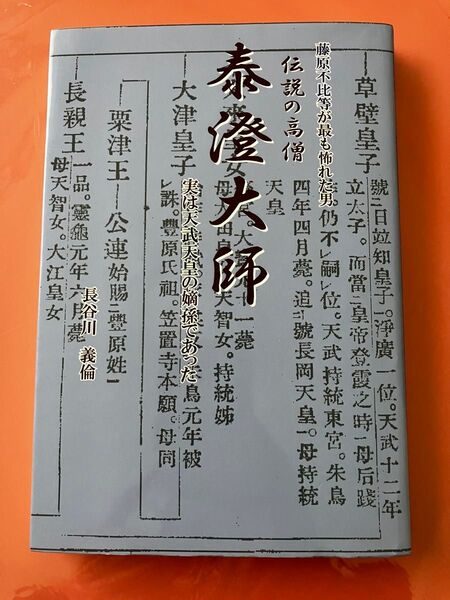 藤原不比等が最も怖れた男
伝説の高僧
泰澄大師
実は天武天皇の嫡孫であった
長谷川 義倫
草壁皇子
號日竝知皇子。淨廣一位。天武十二年
立太子。而當皇帝登霞之時母后踐
仍不嗣位。天武持統東宮。朱鳥
四年四月薨。追號長岡天皇。母持統
天皇
大津皇子
天智女。持統姉
鳥元年被
誅。豐原氏祖。笠置寺本願。母同
粟津王
公連始賜豐原姓
長親王
一品。靈龜元年六月薨
母天智女。大江皇女